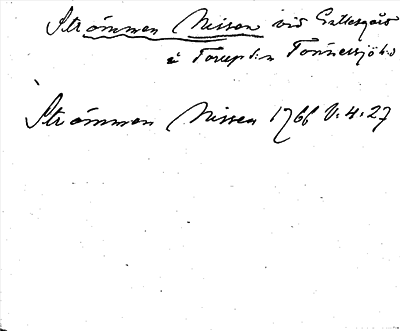 Strömmen Nissen vid Galtesgård
i Torup sn Tönnersjö hd
Strömmen Nissen 1766 V:4:27